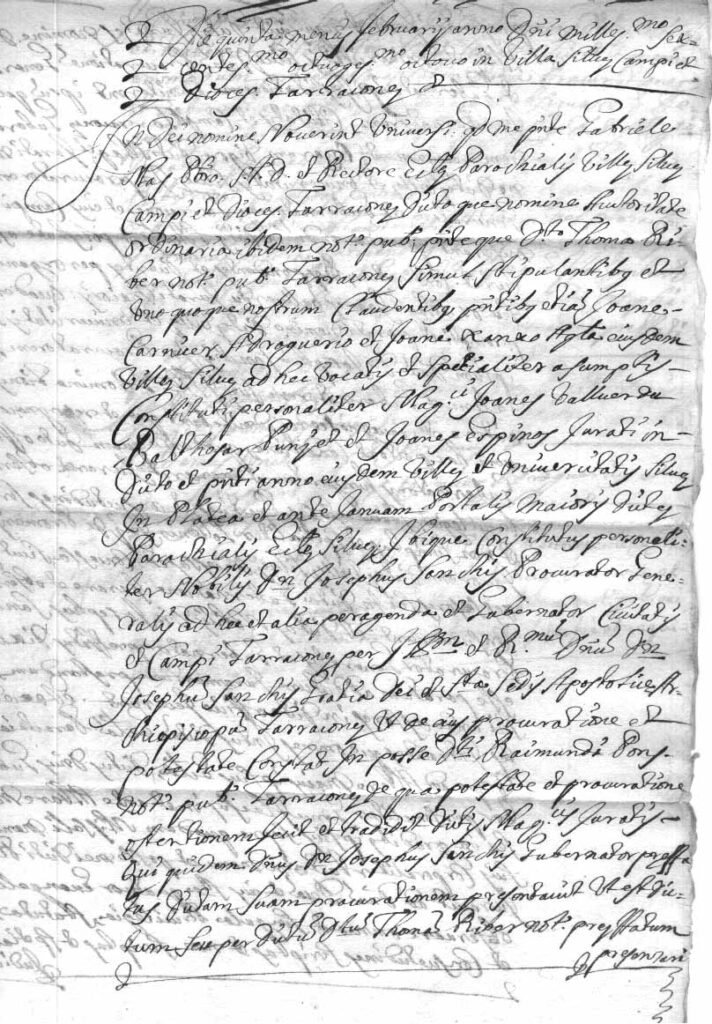 Die quinta mensis februarij anno Dni Milles.mo sex-
centes.mo octuages.mo octavo in Villa Silvæ Campi et
Dioces. Tarracone
In Dei nomine Noverint Universi qd me pnte Gabriele
Mas Pbro. S.T.D. et Rectore Ecclæ Parochialis Villæ Silvæ
Campi et Dioces. Tarraconeæ dictoque nomine Auctoritate
ordinaria ibidem not. pub. pnteque Dto Thoma Ri-
ber not. pub. Tarracone simul stipulantibq et
uno quoque nostrum claudentibq pntibq etiā Joane
Carnicer et Joane xanxo Agla eiusdem
Villæ Silvæ ad hec vocatis et Specialiter asumptis
Constituti personaliter Mag.ci Joanes Vallverdu
Balthasar Punyet et Joanes espinos Jurati in
dicto et pnti anno eiusdem Villæ et Universitatis Silvæ
In Platea et ante Januam Portalis Maioris dictæ
Parochialis Ecclæ Silvæ, Ibique Constitutus personali-
ter Nobilis Dn Josephus Sanchis Procurator Gene-
ralis ad hec et alia peragenda et Gubernator Civitatis
et Campi Tarracone per Illm et R.mu Dnū Dn
Josephū Sanchis Gratia Dei et Sta Sedis Apostolicæ Ar-
chiepiscopū Tarracone Ut de eius procuratione et
potestate Constat In posse Dti Raimundi Pons
not. pub. Tarracone de qua potestate et procuratione
ostentionem fecit et tradidit dictis Mag.cis Juratis
Qui quidem Dnus Dn Josephus Sanchis Gubernator preffa
tus dictam suam procurationem presentavit Ut est dic-
tum seu per dictū Dtū Thomā Riber not. preffatum
presentari